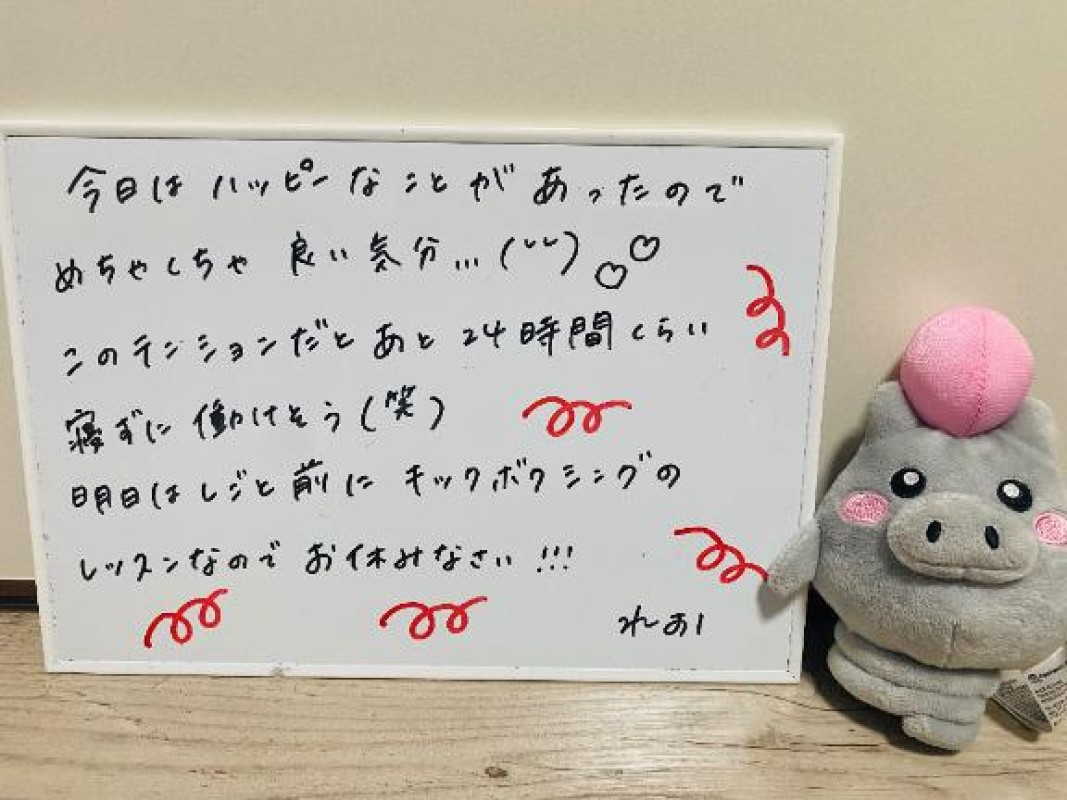 今日はハッピーなことがあったので
めちゃくちゃ良い気分...(˘˘)♡♡
このテンションだとあと24時間くらい
寝ずに働けそう(笑)
明日はしごと前にキックボクシングの
レッスンなのでお休みなさい!!!
れおん